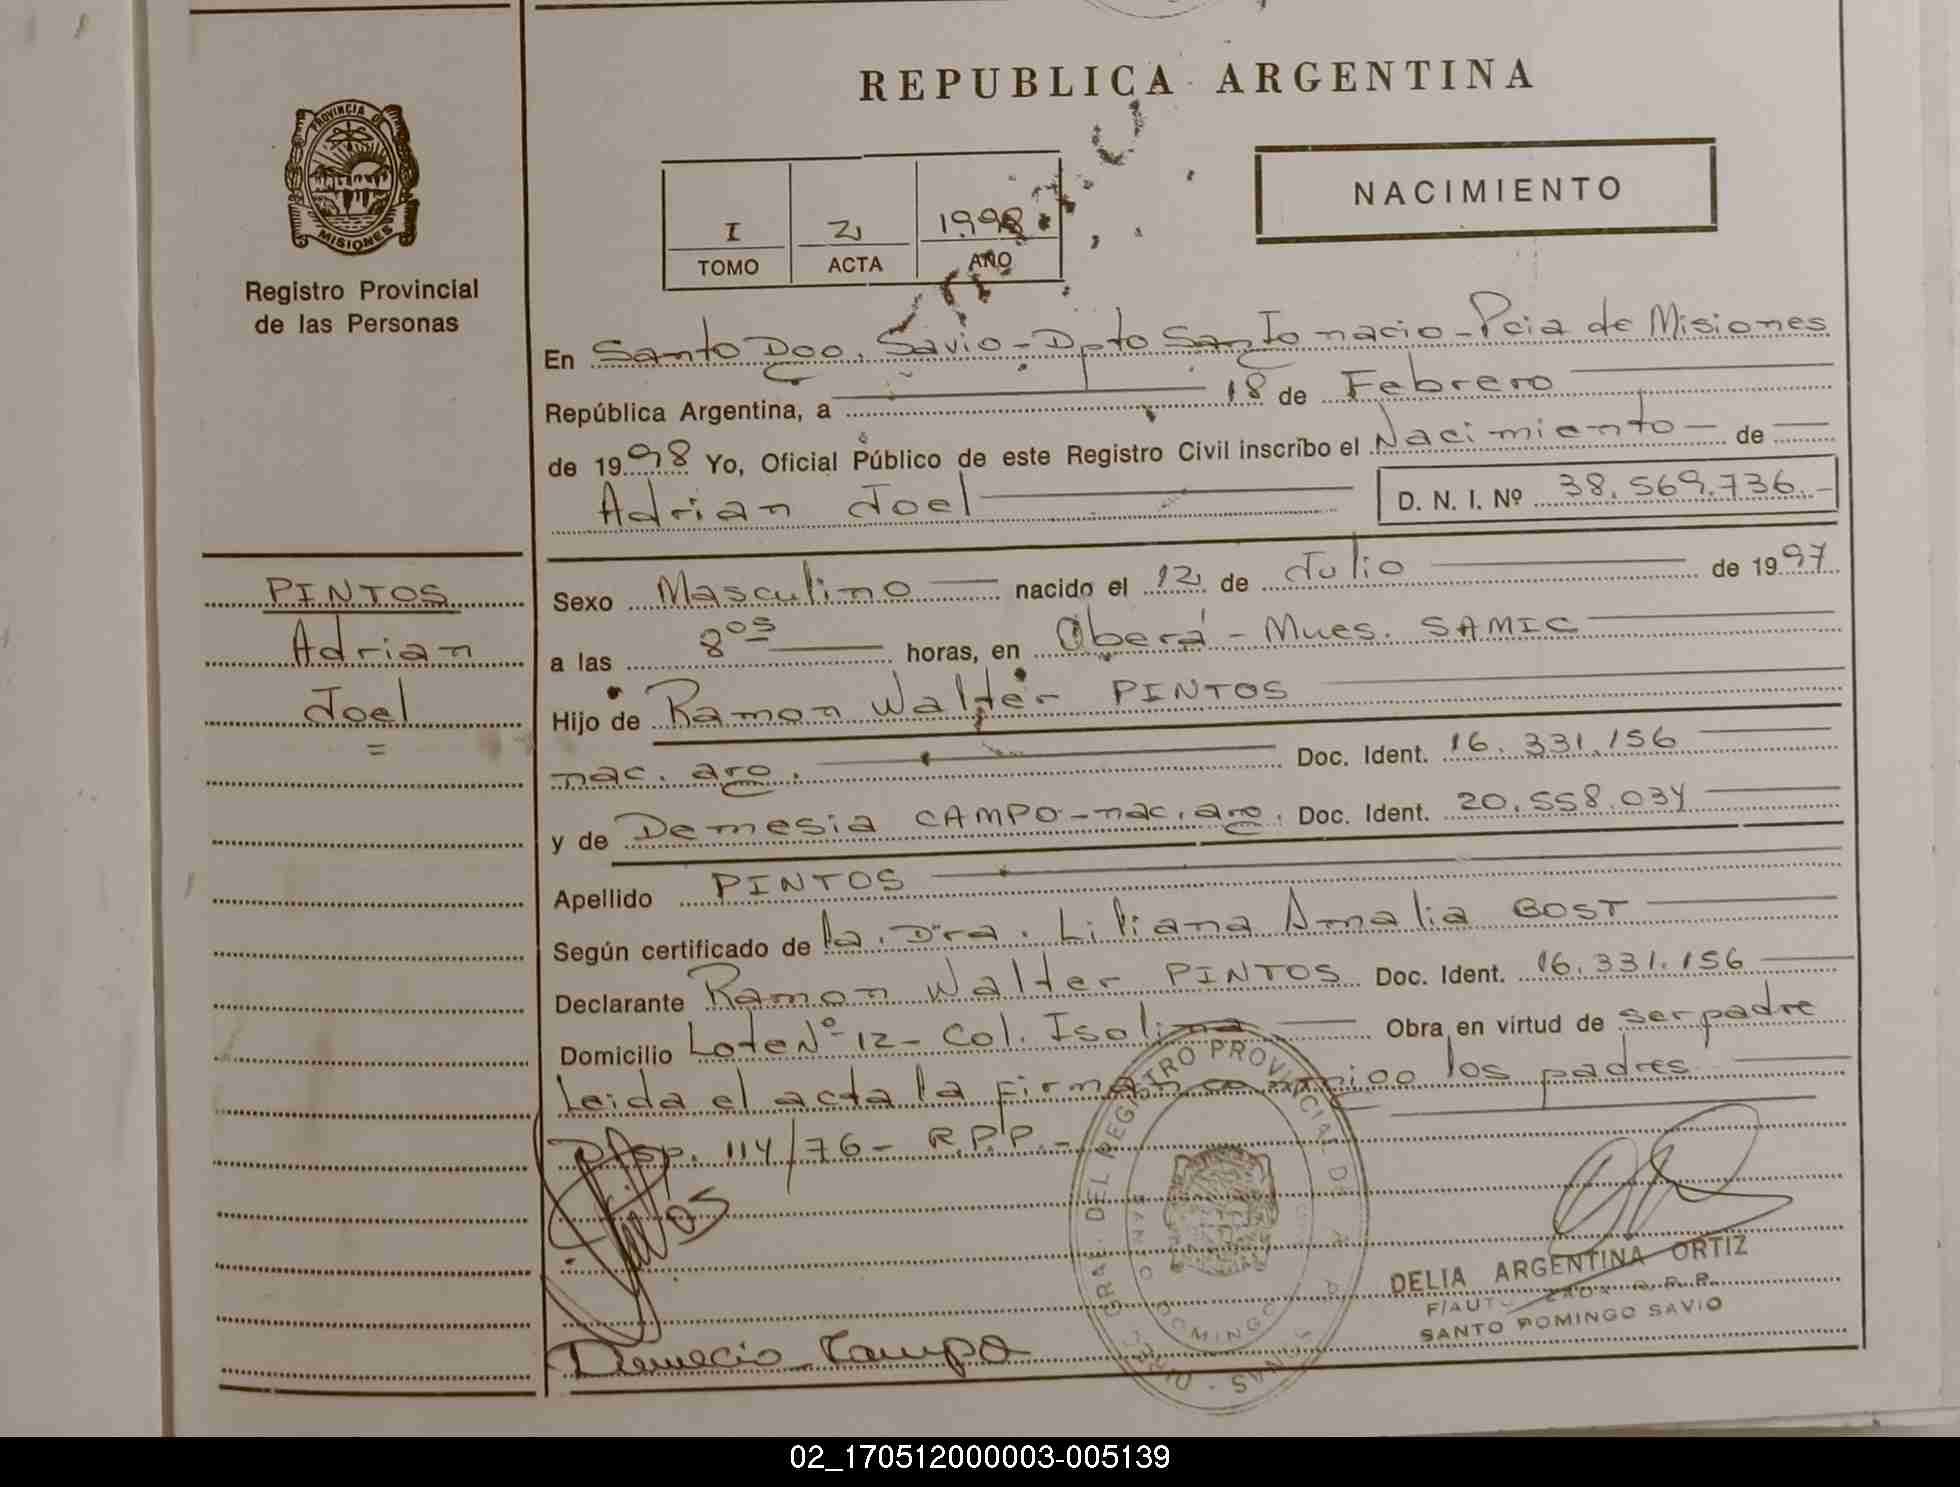 REPUBLICA ARGENTINA
PROVINCIA DE
MISIONES
Registro Provincial
de las Personas
NACIMIENTO
I 2 1998
TOMO ACTA AÑO
En Santo Dgo. Savio - Dpto San Ignacio - Pcia de Misiones
República Argentina, a 18 de Febrero
de 1998 Yo, Oficial Público de este Registro Civil inscribo el Nacimiento de
Adrian Joel D. N. I. Nº 38.569.736.-
PINTOS
Adrian
Joel
=
Sexo Masculino nacido el 12 de Julio de 1997
a las 8 os horas, en Oberá - Mues. SAMIC
Hijo de Ramon Walter PINTOS
nac. arg. Doc. Ident. 16.331.156
y de Demesia CAMPO - nac. arg. Doc. Ident. 20.558.034
Apellido PINTOS
Según certificado de la Dra. Liliana Amalia BOST
Declarante Ramon Walter PINTOS Doc. Ident. 16.331.156
Domicilio Lote Nº 12 - Col. Isolina Obra en virtud de ser padre
Leida el acta la firman conmigo los padres
Disp. 114/76 - R.P.P. -
DELIA ARGENTINA ORTIZ
SANTO DOMINGO SAVIO
Demecia Campo
GRAL. DEL REGISTRO PROVINCIAL DE
DOMINGO
02_170512000003-005139